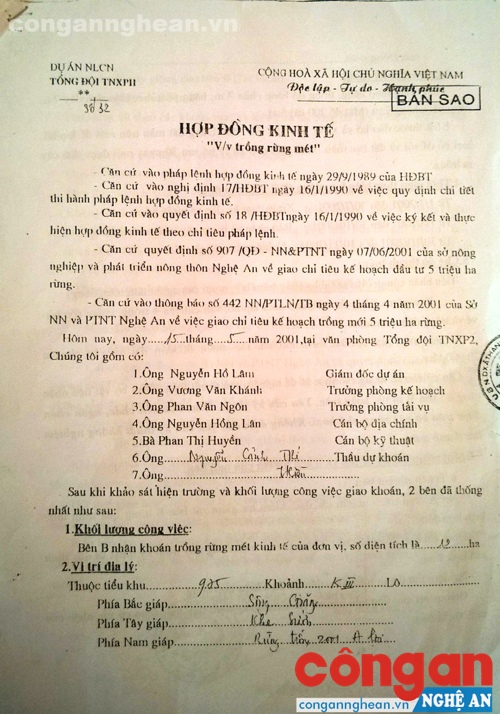 congannghean.vn
DỰ ÁN NLCN
TỔNG ĐỘI TNXPII
**
CỘNG HOÀ XÃ HỘI CHỦ NGHĨA VIỆT NAM
Độc lập - Tự do - Hạnh phúc
BẢN SAO
HỢP ĐỒNG KINH TẾ
"V/v trồng rừng mét"
- Căn cứ vào pháp lệnh hợp đồng kinh tế ngày 29/9/1989 của HĐBT
- Căn cứ vào nghị định 17/HĐBT ngày 16/1/1990 về việc quy định chi tiết
thi hành pháp lệnh hợp đồng kinh tế.
- Căn cứ vào quyết định số 18 /HĐBTngày 16/1/1990 về việc ký kết và thực
hiện hợp đồng kinh tế theo chỉ tiêu pháp lệnh.
- Căn cứ quyết định số 907 /QĐ - NN&PTNT ngày 07/06/2001 của sở nông
nghiệp và phát triển nông thôn Nghệ An về giao chỉ tiêu kế hoạch đầu tư 5 triệu ha
rừng.
- Căn cứ vào thông báo số 442 NN/PTLN/TB ngày 4 tháng 4 năm 2001 của Sở
NN và PTNT Nghệ An về việc giao chỉ tiêu kế hoạch trồng mới 5 triệu ha rừng.
Hôm nay, ngày....15....tháng....5.... năm 2001,tại văn phòng Tổng đội TNXP2,
Chúng tôi gồm có:
1.Ông Nguyễn Hồ Lâm Giám đốc dự án
2.Ông Vương Văn Khánh Trưởng phòng kế hoạch
3.Ông Phan Văn Ngôn Trưởng phòng tài vụ
4.Ông Nguyễn Hồng Lân Cán bộ địa chính
5.Bà Phan Thị Huyền Cán bộ kỹ thuật
6.Ông Nguyễn Cảnh Thầu dự khoán
7.Ông
Sau khi khảo sát hiện trường và khối lượng công việc giao khoán, 2 bên đã thống
nhất như sau:
1.Khối lượng công việc:
Bên B nhận khoán trồng rừng mét kinh tế của đơn vị, số diện tích là....12....ha
2.Vị trí địa lý:
Thuộc tiểu khu....925....Khoảnh....K III....Lô
Phía Bắc giáp....Sông
Phía Tây giáp....Khe
Phía Nam giáp....Rừng trồng 2001 A
côngan
congannghean.vn NGHỆ AN